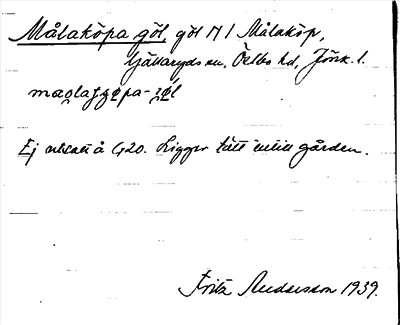 Målaköpa göl, göl N / Målaköp,
Gällaryds sn, Östbo hd, Jönk. l.
Ej utsatt å G20. Ligger tätt intill gården.
Fritz Andersson 1939.